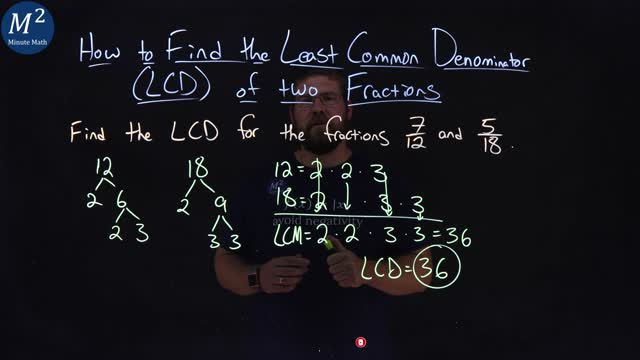 M²
Minute Math
How to Find the Least Common Denominator
(LCD) of two Fractions
Find the LCD for the fractions 7/12 and 5/18.
12
2 6
2 3
18
2 9
3 3
12 = 2 · 2 · 3
18 = 2 · 3 · 3
M²
avoid negativity
LCM = 2 · 2 · 3 · 3 = 36
LCD = 36